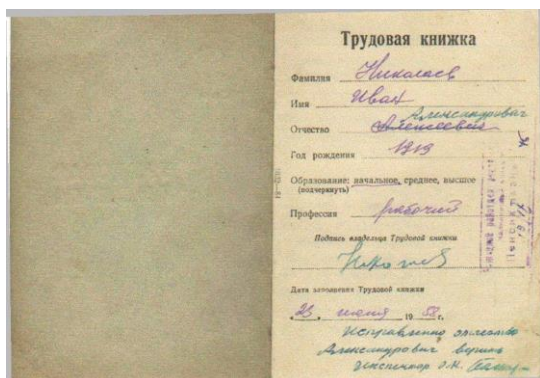 Трудовая книжка
Фамилия Николаев
Имя Иван
Александрович
Отчество Алексеевич
Год рождения 1919
Образование: начальное, среднее, высшее
(подчеркнуть)
Профессия рабочий
Подпись владельца Трудовой книжки
Дата заполнения Трудовой книжки
"23" июня 1958г.
Исправленно отчество
Александрович верить